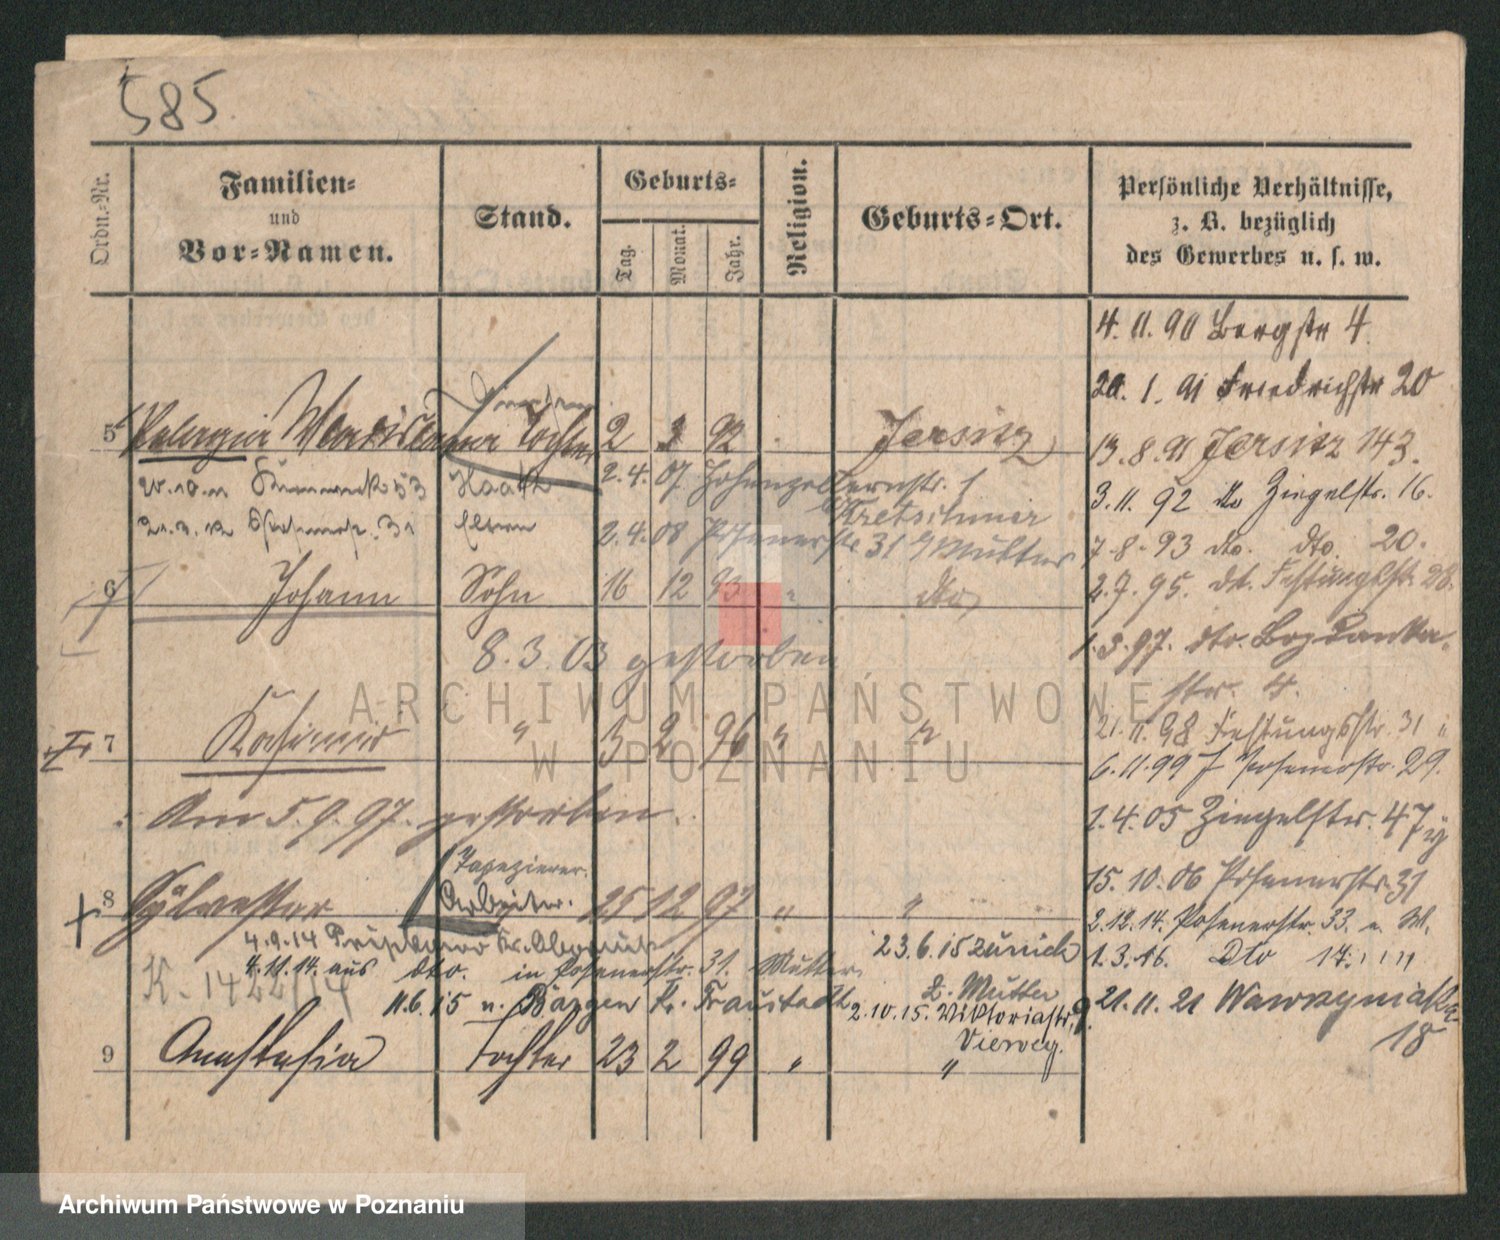 585
Ordn.-Nr.
Familien-
und
Vor-Namen.
Stand.
Geburts-
Tag.
Monat.
Jahr.
Religion.
Geburts-Ort.
Persönliche Verhältnisse,
z. B. bezüglich
des Gewerbes u. s. w.
4. 11. 90 Bergstr 4
20. 1. 91 Friedrichstr 20
5 Pelagia Tochter 2 92 Jersitz
13. 8. 91 Jersitz 143.
2. 4. 07 Hohenzollernstr. 1
3. 11. 92 do Ziegelstr. 16.
Kretschmer
21. 3. 12 31 Eltern
2. 4. 08 Posenerstr 31 Mutter
7. 8. 93 dto. dto. 20.
6 Johann Sohn 16 12 93 " dto
2. 7. 95. dt. Festungsstr. 28.
8. 3. 03 gestorben
97. dto. Bogdanka-
str. 4.
21. 11. 98 Festungsstr. 31
7 Kasimir " 3 2 96 " "
6. 11. 99 Posenerstr. 29.
Am 5. 9. 97. gestorben.
1. 4. 05 Ziegelstr. 47
Tapezierer.
15. 10. 06 Posenerstr. 31
8 Sylvester Arbeiter. 25 12 97 " "
2. 12. 14. Posenerstr. 33.
4. 9. 14 Kr. Obornik
23. 6. 15 Zürich
4. 11. 14. aus dto. in Posenerstr. 31. Mutter
1. 3. 16. Dto 17.
K. 1422/14
z. Mutter
11. 6. 15 n. Bargen Kr. Fraustadt
2. 10. 15. Viktoriastr. 9.
21. 11. 21 Wawrzyniaka
18
Vierweg.
9 Anastasia Tochter 23 2 99 " "
ARCHIWUM PAŃSTWOWE
W POZNANIU
Archiwum Państwowe w Poznaniu